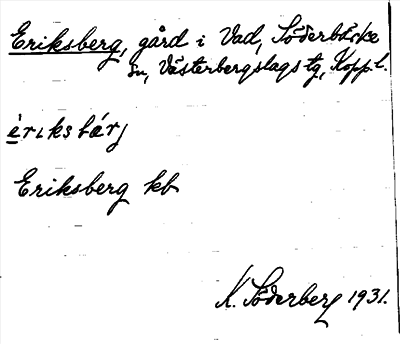 Eriksberg, gård i Vad, Söderbärke
sn, Västerbergslags tg, Kopp. l.
èrıksbárj
Eriksberg kb
K. Söderberg 1931.